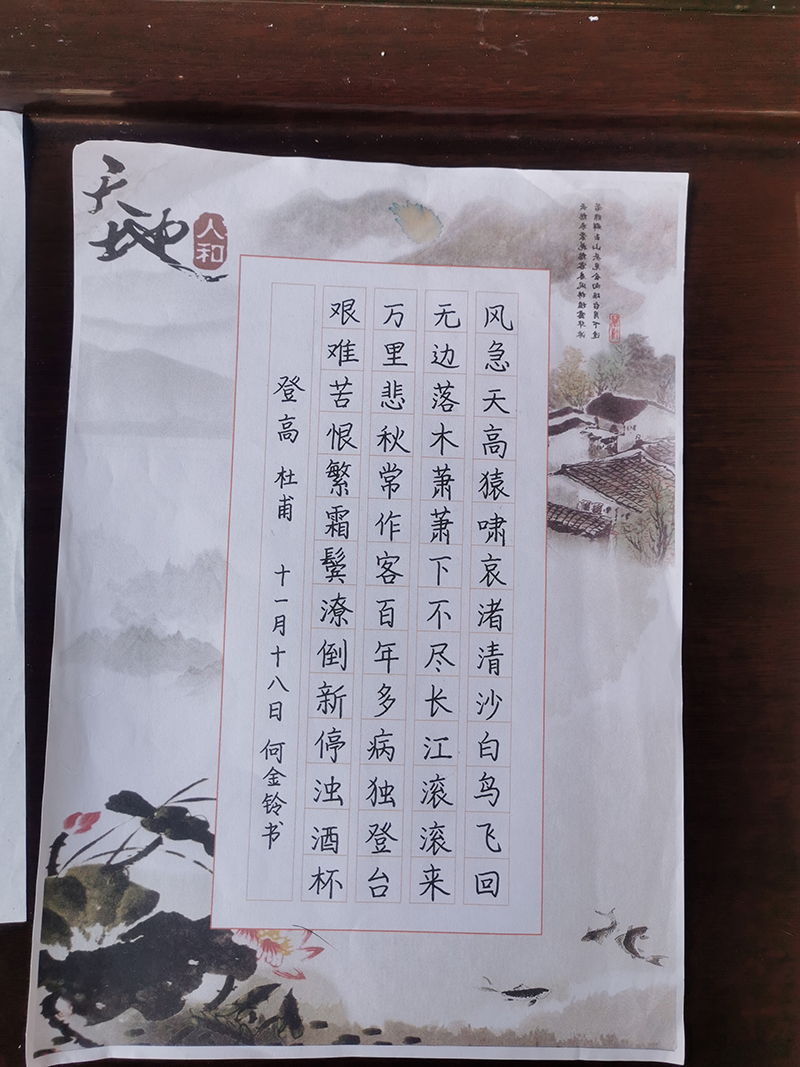 风急天高猿啸哀渚清沙白鸟飞回
无边落木萧萧下不尽长江滚滚来
万里悲秋常作客百年多病独登台
艰难苦恨繁霜鬓潦倒新停浊酒杯
登高 杜甫 十一月十八日 何金铃书
天地
人和